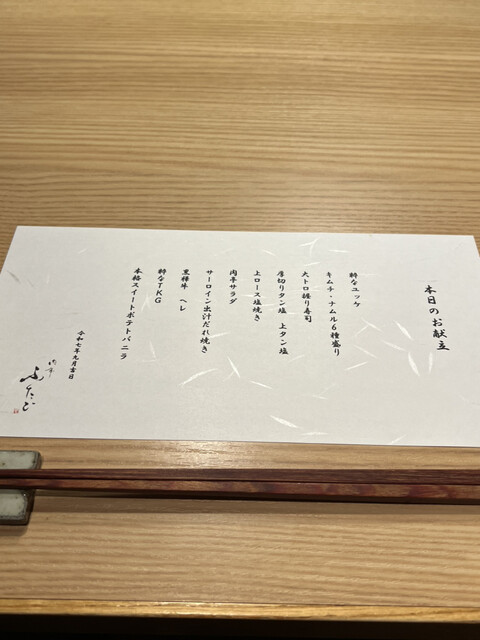 本日のお献立
粋なユッケ
キムチ・ナムル６種盛り
大トロ握り寿司
厚切りタン塩 上タン塩
上ロース塩焼き
肉亭サラダ
サーロイン出汁だれ焼き
黒樺牛 ヘレ
粋なTKG
本格スイートポテトバニラ
令和七年九月吉日
肉亭
ふたご